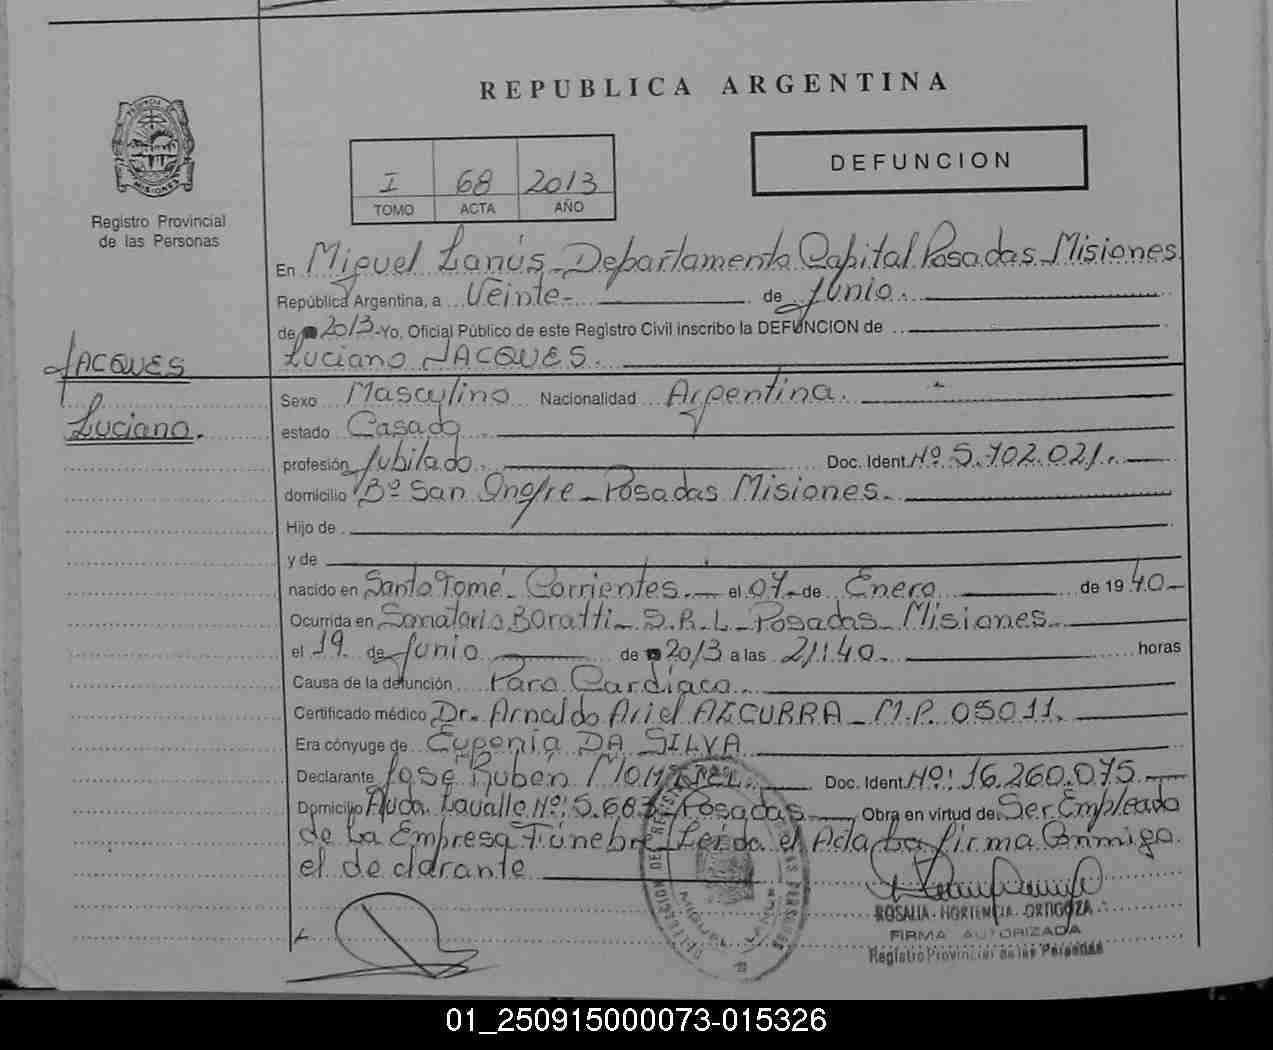 REPUBLICA ARGENTINA
DEFUNCION
I 68 2013
TOMO ACTA AÑO
MISIONES
Registro Provincial
de las Personas
En Miguel Lanús - Departamento Capital Posadas - Misiones
República Argentina, a Veinte - de Junio.
de 2013 - Yo, Oficial Público de este Registro Civil inscribo la DEFUNCION de
Luciano JACQUES.
JACQUES
Luciano.
Sexo Masculino Nacionalidad Argentina.
estado Casado
profesión Jubilado. Doc. Ident. Nº 5.702.021.
domicilio Bº San Onofre - Posadas Misiones.
Hijo de
y de
nacido en Santo Tomé - Corrientes. el 07 - de Enero de 19 40 -
Ocurrida en Sanatorio Boratti - S.R.L - Posadas - Misiones.
el 19 de Junio de 2013 a las 21:40. horas
Causa de la defunción Paro Cardíaco.
Certificado médico Dr. Arnaldo Ariel AZCURRA - M.P. 05011.
Era cónyuge de Eugenia DA SILVA
Declarante José Rubén Doc. Ident. Nº: 16.260.075.
Domicilio Avda. Lavalle Nº: 5.687 - Posadas Obra en virtud de Ser Empleado
de la Empresa Fúnebre - Leída el Acta La firma Conmigo
el declarante
DELEGACION DE REGISTRO DE LAS PERSONAS
MIGUEL LANUS
ROSALIA HORTENCIA ORTIGOZA
FIRMA AUTORIZADA
Registro Provincial de las Personas
01_250915000073-015326